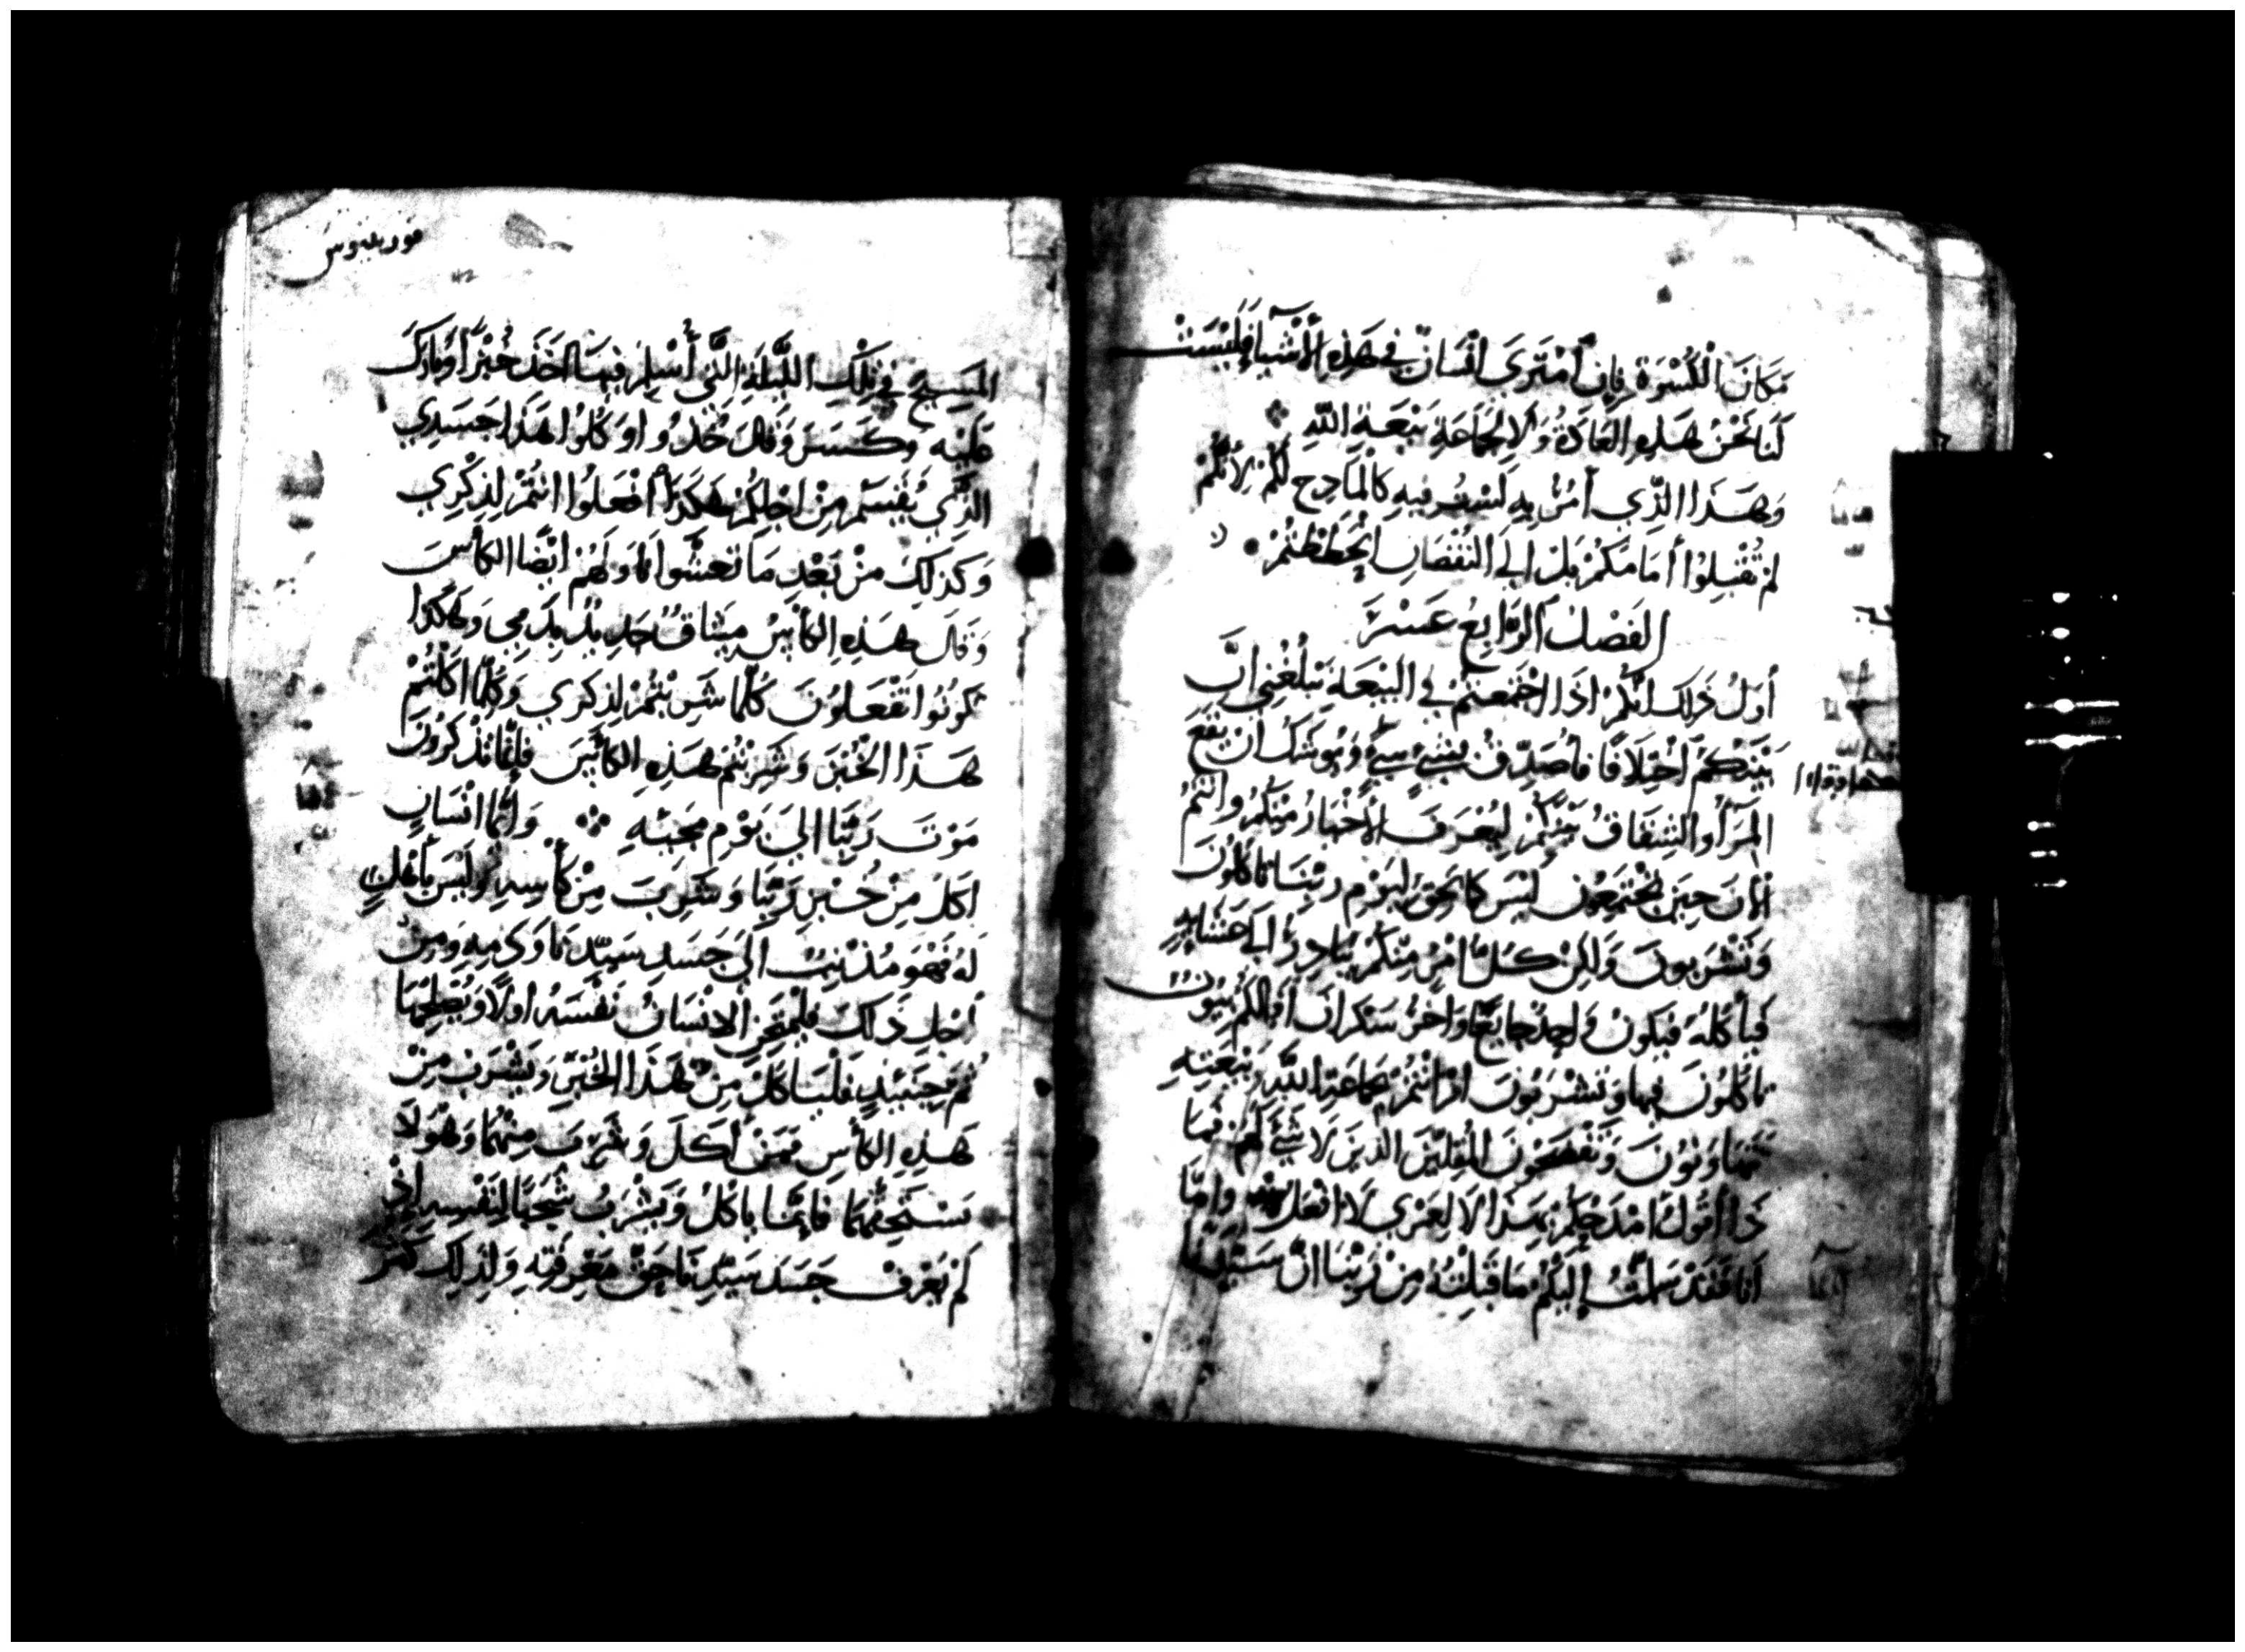 مَكَانَ الْكُسْوَةِ فَإِن اَمْتَرَى اِنْسَانٌ فِي هَذِهِ الْأَشْيَآءِ فَلَيْسَتْ
لَنَا نَحْنُ هَذِهِ العَادَةُ وَلَا لِجَمَاعَةِ بَيْعَةِ اللَّهِ
وَهَذَا الَّذِي أَمُرُ بِهِ لَسْتُ فِيهِ كَالْمَادِحِ لَكُمْ لِأَنَّكُمْ
لَمْ تُقْبِلُوا أَمَامَكُمْ بَلْ اِلَى النُقْصَانِ اِنْحَطَطْتُمْ
الفَصْلُ الرَابِعُ عَشَرَ
أوَلُ ذَلِكَ اَنَّكُمْ اِذَا اجْتَمَعْتُمْ فِي البَيْعَةِ يَبْلُغُنِي اَنَّ
بَيْنَكُمْ اَخْتِلَافًا فَأُصَدِّقُ بِشَيْءٍ شَيْءٍ وَيُوشَكُ اَنْ يَقَعَ
المِرَآءُ والشِقَاقُ بَيْنَكُمْ لِيُعْرَفَ الأَخْيَارُ مِنْكُمْ وَاَنْتُمُ
الأنَ حِينَ تَجْتَمِعُونَ لَيْسَ كَمَا يَحِقُّ لِيَوْمِ رَبِّنَا تَأكُلُونَ
وَتَشْرَبُونَ وَلَكِنْ كُلُّ امْرِءٍ مِنْكُمْ يُبَادِرُ اِلَى عَشَايِهِ
فَيَأكُلُهُ فَيَكُونُ وَاحِدٌ جَايِعًا وَاخَرُ سَكْرَانَ اَفَمَالَكُمْ بُيُوتٌ
تَاكُلُونَ فِيهَا وَتَشْرَبُونَ اَمْ اَنْتُمْ بِجَمَاعَةِ اللَّهِ وَبِيْعَتِهِ
تَتَهَاوَنُونَ وَتَفْضَحُونَ المُقِلِّيْنَ الذِينَ لَا شَيْءَ لَهُمْ فَمَا
ذَا اَقُولُ اَمْدَحُكُمْ بِهَذَا لَا لَعَمْرِي لَا اَفْعَلُ وَاَمَّا
اَنَا فَقَدْ سَلَّمْتُ إِلَيْكُمْ مَا قَبِلْتُهُ مِنْ رَبِّنَا اَنَّ سَيِّدَنَا
المَسِيحَ فِي تِلْكَ اللَّيْلَةِ الَّتِي أُسْلِمَ فِيهَا اَخَذَ خُبْزًا وَبَارَكَ
عَلَيْهِ وَكَسَرَ وَقَالَ خُذُوا وَكُلُوا هَذَا جَسَدِي
الَّذِي يُقْسَمُ مِنْ اَجْلِكُمْ هَكَذَا أَفْعَلُوا اَنْتُمْ لِذِكْرِي
وَكَذَلِكَ مِنْ بَعْدِ مَا تَعَشَّوا نَاوَلَهُمْ اَيْضًا الكَأسَ
وَقَالَ هَذِهِ الكَأسُ مِيثَاقٌ جَدِيدٌ بِدَمِي وَهَكَذَا
كُونُوا تَفْعَلُونَ كُلَّمَا شَرِبْتُمْ لِذِكرِي وَكُلَّمَا اَكَلْتُمْ
هَذَا الخُبْزَ وَشَرِبْتُمْ هَذِهِ الكَأسَ فَإِنَّمَا تَذْكُرُونَ
مَوْتَ رَبِّنَا اِلَى يَوْمِ مَجِيئِهِ وَاَيُّمَا اِنْسَانٍ
اَكَلَ مِنْ خُبْزِ رَبِّنَا وَشَرِبَ مِنْ كَأسِهِ وَلَيْسَ بِأَهْلٍ
لَهُ فَهْوَ مُذْنِبٌ اِلَى جَسَدِ سَيِّدِنَا وَدَمِهِ وَمِنْ
أجْلِ ذَلِكَ فَلْيَمْتَحِنِ الاِنْسَانُ نَفْسَهُ اَوَلًا وَيُصْلِحْهَا
ثُمَّ حِينَئِذٍ فَلْيَاكُلْ مِنْ هَذَا الخُبْزِ وَيَشْرَب مِنْ
هَذِهِ الكَأسِ فَمَنْ أَكَلَ وَشَرِبَ مِنْهُمَا وَهْوَ لَا
يَسْتَحِقُّهُمَا فَإِنَّمَا يَاكُلُ وَيَشْرَبُ شَجَبًا لِنَفْسِهِ اِذْ
لَمْ يَعْرِفْ جَسَدَ سَيِّدِنَا حَقَّ مَعْرِفَتِهِ وَلِذَلِكَ كَثُرَ